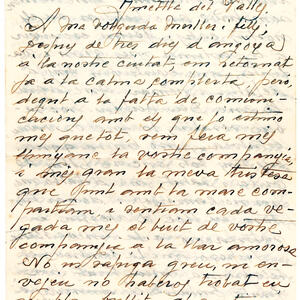 Ametlla del Vallès
A ma volguda muller i fills,
després de tres dies d'angoya
a la nostre ciutat, em retornat
ja a la calma complerta, però,
degut a la falta de comuni-
cacions amb els que jo estimo
mes que tot rem feia mes
llunyana la vostre companyia,
i mes gran la meva tristesa
que junt amb la mare com-
partiam i sentiam cada ve-
gada mes el buit de vostre
companyia a la llar amorosa
No m sapiga greu, ni en
vejeu no haberos trobat en